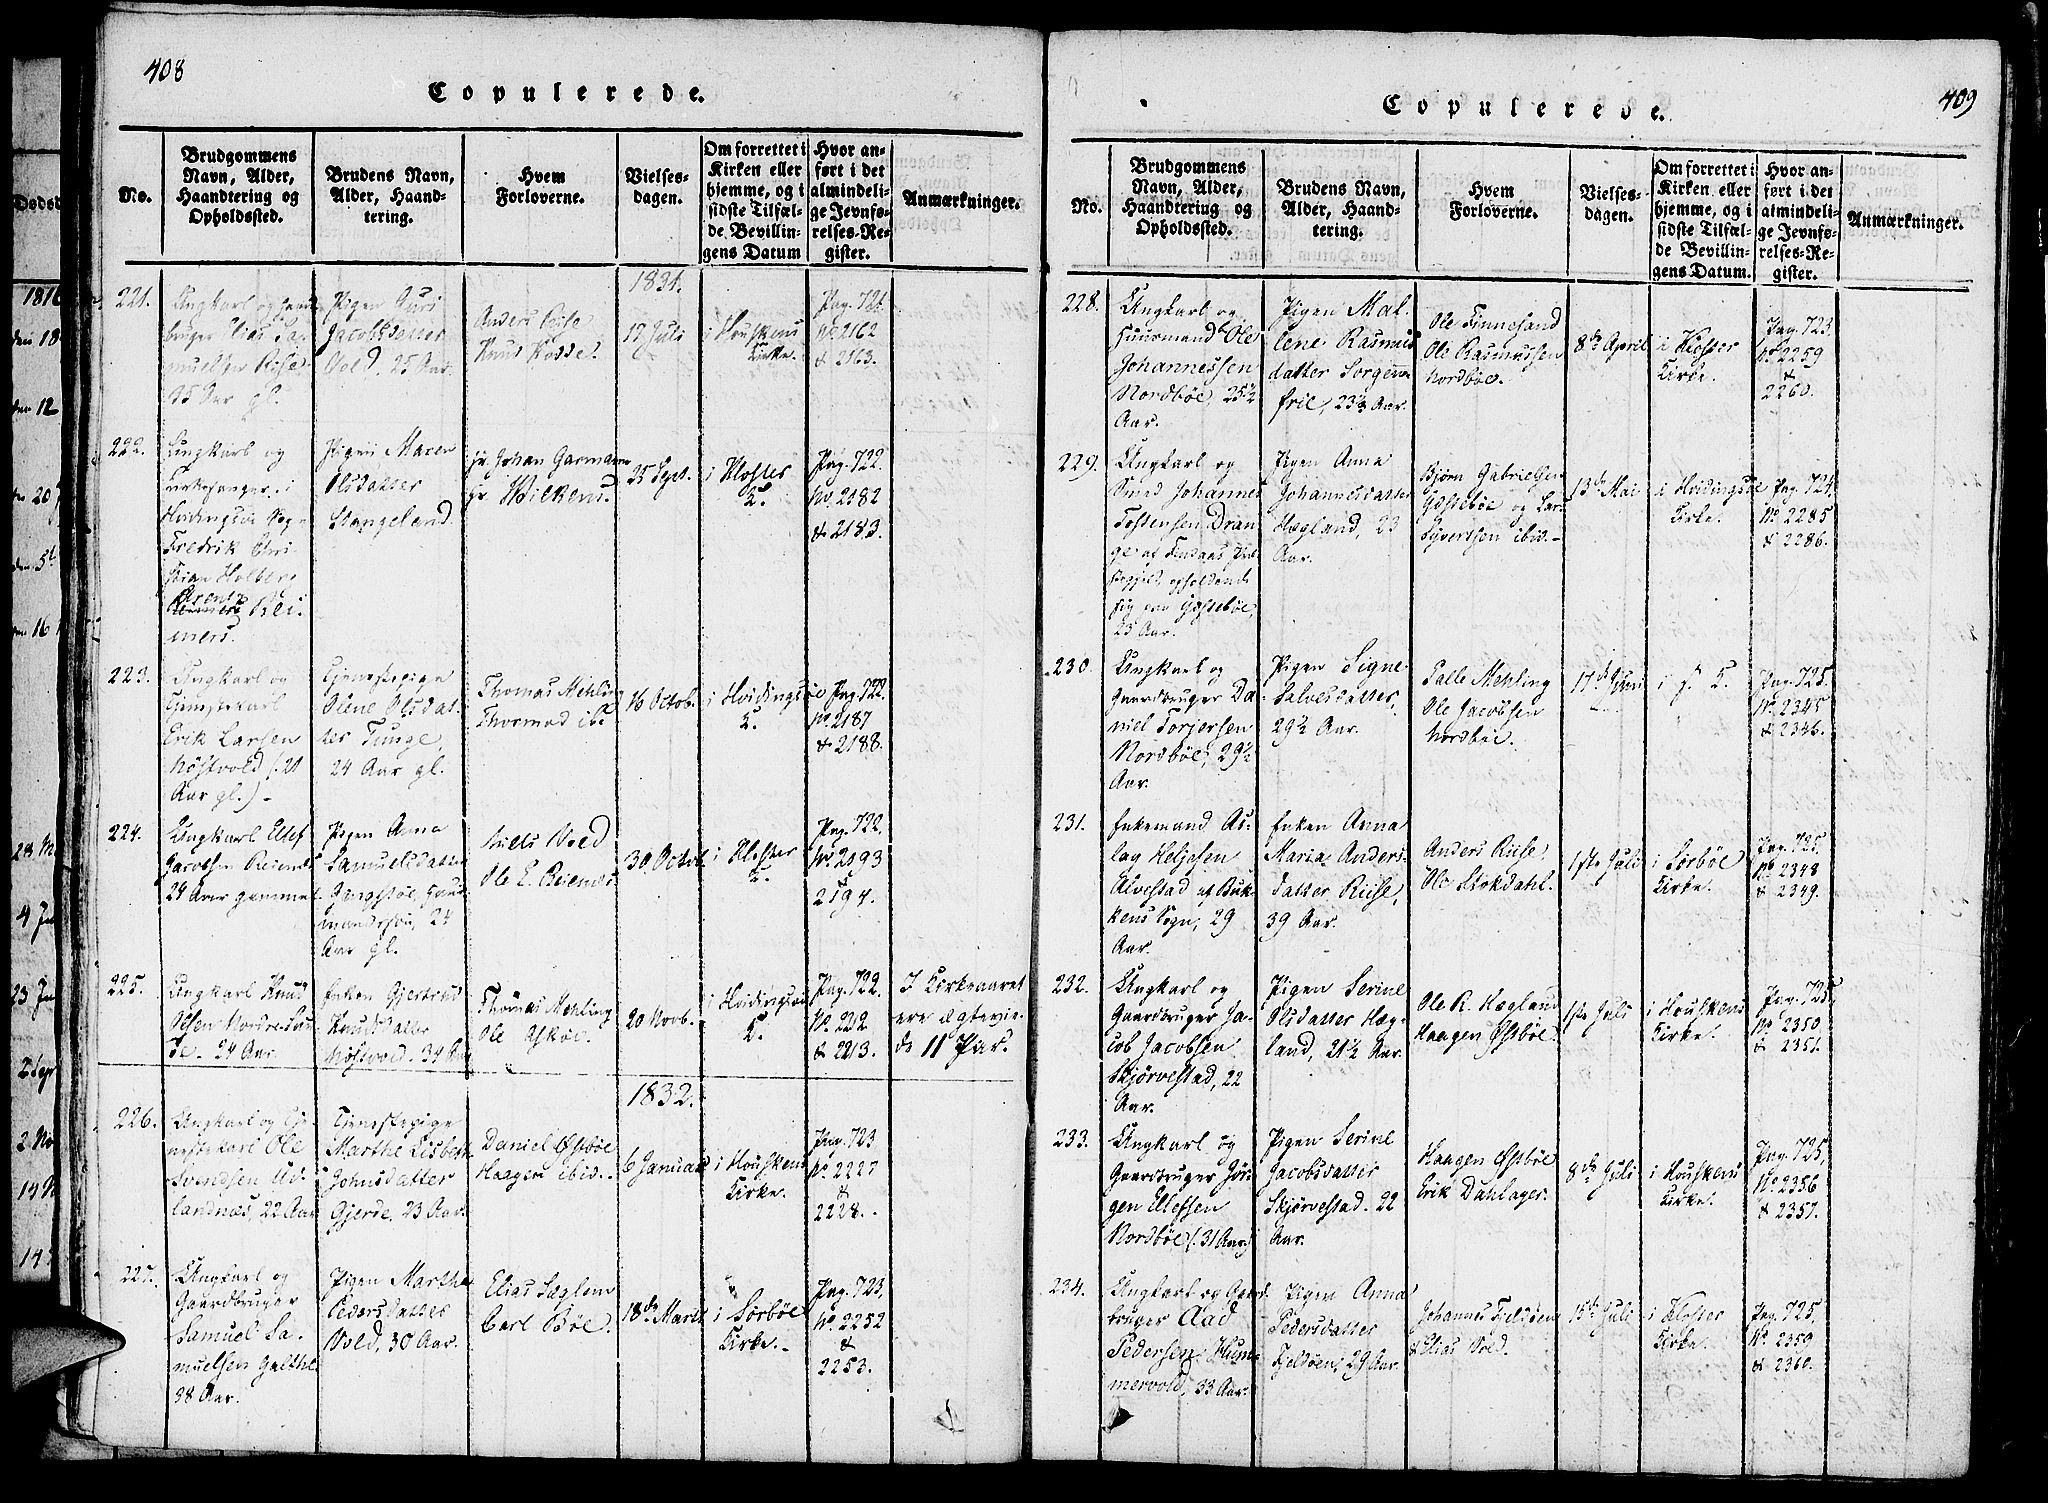 408
Copulerede.
No.
Brudgommens Navn, Alder, Haandtering og Opholdssted.
Brudens Navn, Alder, Haandtering.
Hvem Forloverne.
Vielsesdagen.
Om forrettet i Kirken eller hjemme, og i sidste Tilfælde Bevillingens Datum
Hvor anført i det almindelige Jevnførelses-Register.
Anmærkninger.
1831.
221.
Ungkarl og
Samuelsen
Aar gl.
Pigen Guri
Jacobsdatter
Vold, 25 Aar.
Anders
Knud
17 Juli
i Houskens
Kirke.
Pag. 721.
No. 2162
& 2163.
222.
Ungkarl og
Kirkesanger i
Hvidingsöe Sogn
Fredrik
Holber
Reimers.
Pigen Maren
Olsdatter
Stangeland.
Hr. Johan Garmann
Hr. Wilkens.
25 Sept.
i Kloster
K.
Pag. 722.
No. 2182
& 2183.
223.
Ungkarl og
Tjenestekarl
Erik Larsen
Nöstvold (: 21
Aar gl.) -
Tjenestepige
Olene Olsdatter
Tunge,
24 Aar gl.
Thomas Mehling
Thormod ibd
16 Octob.
i Hvidingsöe
K.
Pag. 722.
No. 2187
& 2188.
224.
Ungkarl Ellef
Jacobsen Reimes
24 Aar gammel
Pigen Anna
Samuelsdatter
24
Aar gl.
Niels Vold
Ole E. Reimes.
30 Octob.
i Kloster
K.
Pag. 722.
No. 2193
&
2194.
225.
Ungkarl Knud
Olsen
24 Aar.
Enken Gjertrud
Knudsdatter
Nöstvold. 34 Aar
Thomas Mehling
Ole Askøe.
20 Novb.
i Hvidingsöe
K.
Pag. 722.
No. 2212
& 2213.
I Kirkeaaret
ere ægtevie-
de 11 Par.
1832.
226.
Ungkarl og Tje-
nestekarl Ole
Svendsen Ud-
landnæs, 22 Aar
Tjenestepige
Marthe Lisbeth
Johnsdatter
Gjerde, 23 Aar.
Daniel Østbøe
Haagen ibid.
6 Januar
i Houskens
Kirke.
Pag. 723
No. 2227
&
2228.
227.
Ungkarl og
Gaardbruger
Samuel Sa-
muelsen Galthe
28 Aar.
Pigen Marthe
Pedersdatter
Vold, 30 Aar.
Elias Sæglem
Carl Bøe.
18de Marts
i Sörböe
Kirke.
Pag. 723,
No. 2252
&
2253.
409
Copulerede.
No.
Brudgommens Navn, Alder, Haandtering og Opholdssted.
Brudens Navn, Alder, Haandtering.
Hvem Forloverne.
Vielsesdagen.
Om forrettet i Kirken eller hjemme, og i sidste Tilfælde Bevillingens Datum.
Hvor anført i det almindelige Jevnførelses-Register.
Anmærkninger.
228.
Ungkarl og
Huusmand Ole
Johannessen
Nordbøe, 25½
Aar.
Pigen Mal-
lene Rasmus-
datter Sorgen-
frie, 23½ Aar.
Ole Finnesand
Ole Rasmussen
Nordbøe.
8de April
i Kloster
Kirke.
Pag. 723.
No. 2259
&
2260.
229.
Ungkarl og
Smed Johannes
Tostensen Dran-
ge af Findaas Præ-
stegjeld, opholdende
sig paa Gastebøe,
25 Aar.
Pigen Anna
Johannesdatter
Hægland, 23
Aar.
Bjørn Gabrielsen
Gastebøe og Lar
Syvertsen ibid.
13de Mai
i Hvidingsøe
Kirke.
Pag. 724.
No. 2285
& 2286.
230.
Ungkarl og
Gaardbruger Da-
niel Torjersen
Nordbøe, 29½
Aar.
Pigen Signe
Salvesdatter,
29½ Aar.
Palle Mehling
Ole Jacobsen
Nordbøe.
17de Juni
i s. K.
Pag. 725.
No. 2345
& 2346.
231.
Enkemand As-
lag Heljesen
Alvestad af Buk-
kens Sogn, 29
Aar.
Enken Anna
Maria Anders-
datter Riise,
39 Aar.
Anders Riise.
Ole Stokdahl.
1ste Juli
i Sörbøe
Kirke.
Pag. 725.
No. 2348
& 2349.
232.
Ungkarl og
Gaardbruger Ja-
cob Jacobsen
Skjørvestad, 22
Aar.
Pigen Serine
Olsdatter Hæg-
land, 21½ Aar.
Ole R. Hægland
Haagen Østbøe.
1ste Juli
i Houskens
Kirke.
Pag. 725,
No. 2350.
& 2351.
233.
Ungkarl og
Gaardbruger Jør-
gen Ellefsen
Nordbøe (: 31 Aar.)
Pigen Serine
Jacobsdatter
Skjørvestad. 22
Aar.
Haagen Østbøe
Erik Dahlager.
8de Juli
i Houskens
Kirke.
Pag. 725,
No. 2356
& 2357.
234.
Ungkarl og Gaard-
bruger Aad
Pedersen Hum-
mervold, 33 Aar.
Pigen Anna
Pedersdatter
Fjeldøen, 29 Aar.
Johannes Fjeldøen
& Elias Vold.
15de Juli
i Kloster
Kirke.
Pag. 725,
No. 2359
& 2360.